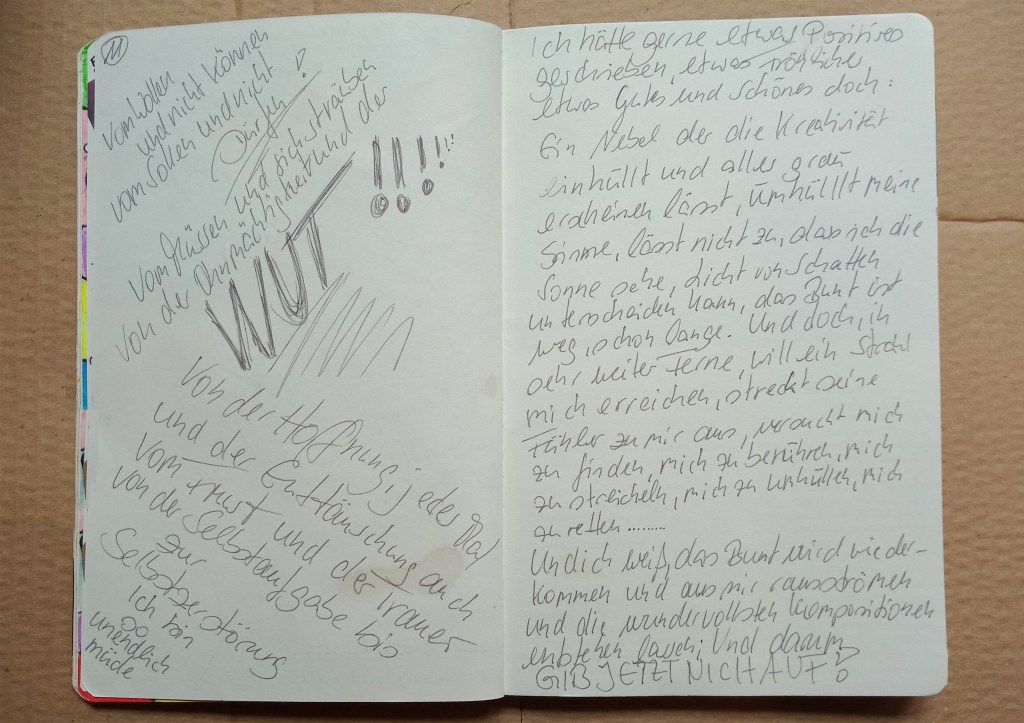 11
vom Wollen
und nicht können
vom Sollen und nicht
Dürfen!
vom Müssen und sich sträuben
von der Ohnmächtigkeit und der
WUT!!!!!!
Von der Hoffnung, jedes Mal
und der Enttäuschung auch
Vom Frust und der Trauer
von der Selbstaufgabe bis
zur
Selbstzerstörung
Ich bin
so
unendlich
müde
Ich hätte gerne etwas Positives
geschrieben, etwas Fröhliches
etwas Gutes und Schönes doch:
Ein Nebel der die Kreativität
einhüllt und alles grau
erscheinen lässt, umhüllt meine
Sinne, lässt nicht zu, dass ich die
Sonne sehe, Licht von Schatten
unterscheiden kann, das Bunt ist
weg, schon lange. Und doch, in
sehr weiter Ferne, will ein Strahl
mich erreichen, streckt seine
Fühler zu mir aus, versucht mich
zu finden, mich zu berühren, mich
zu streicheln, mich zu umhüllen, mich
zu retten.........
Und ich weiß, das Bunt wird wieder-
kommen und aus mir rausströmen
und die wundervollsten Kompositionen
entstehen Und darum
GIB JETZT NICHT AUF!